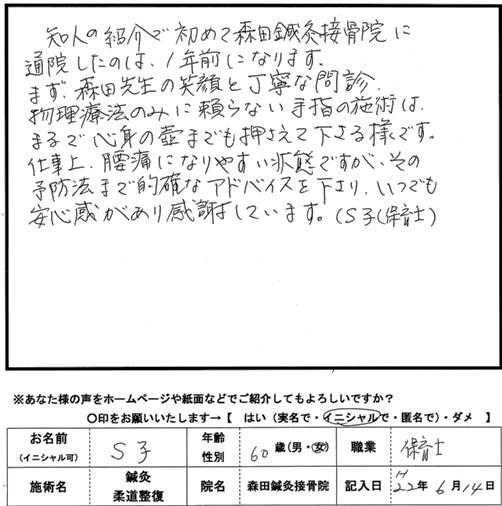 知人の紹介で初めて森田鍼灸接骨院に
通院したのは、1年前になります。
まず、森田先生の笑顔と丁寧な問診、
物理療法のみに頼らない手指の施術は、
まるで心身の壺までも押さえて下さる様です。
仕事上、腰痛になりやすい状態ですが、その
予防法まで的確なアドバイスを下さり、いつでも
安心感があり感謝しています。(S子(保育士)
※あなた様の声をホームページや紙面などでご紹介してもよろしいですか?
○印をお願いいたします→【 はい(実名で・イニシャルで・匿名で)・ダメ 】
お名前 (イニシャル可) S子 年齢 性別 60歳(男・女) 職業 保育士
施術名 鍼灸 柔道整復 院名 森田鍼灸接骨院 記入日 H22年6月14日